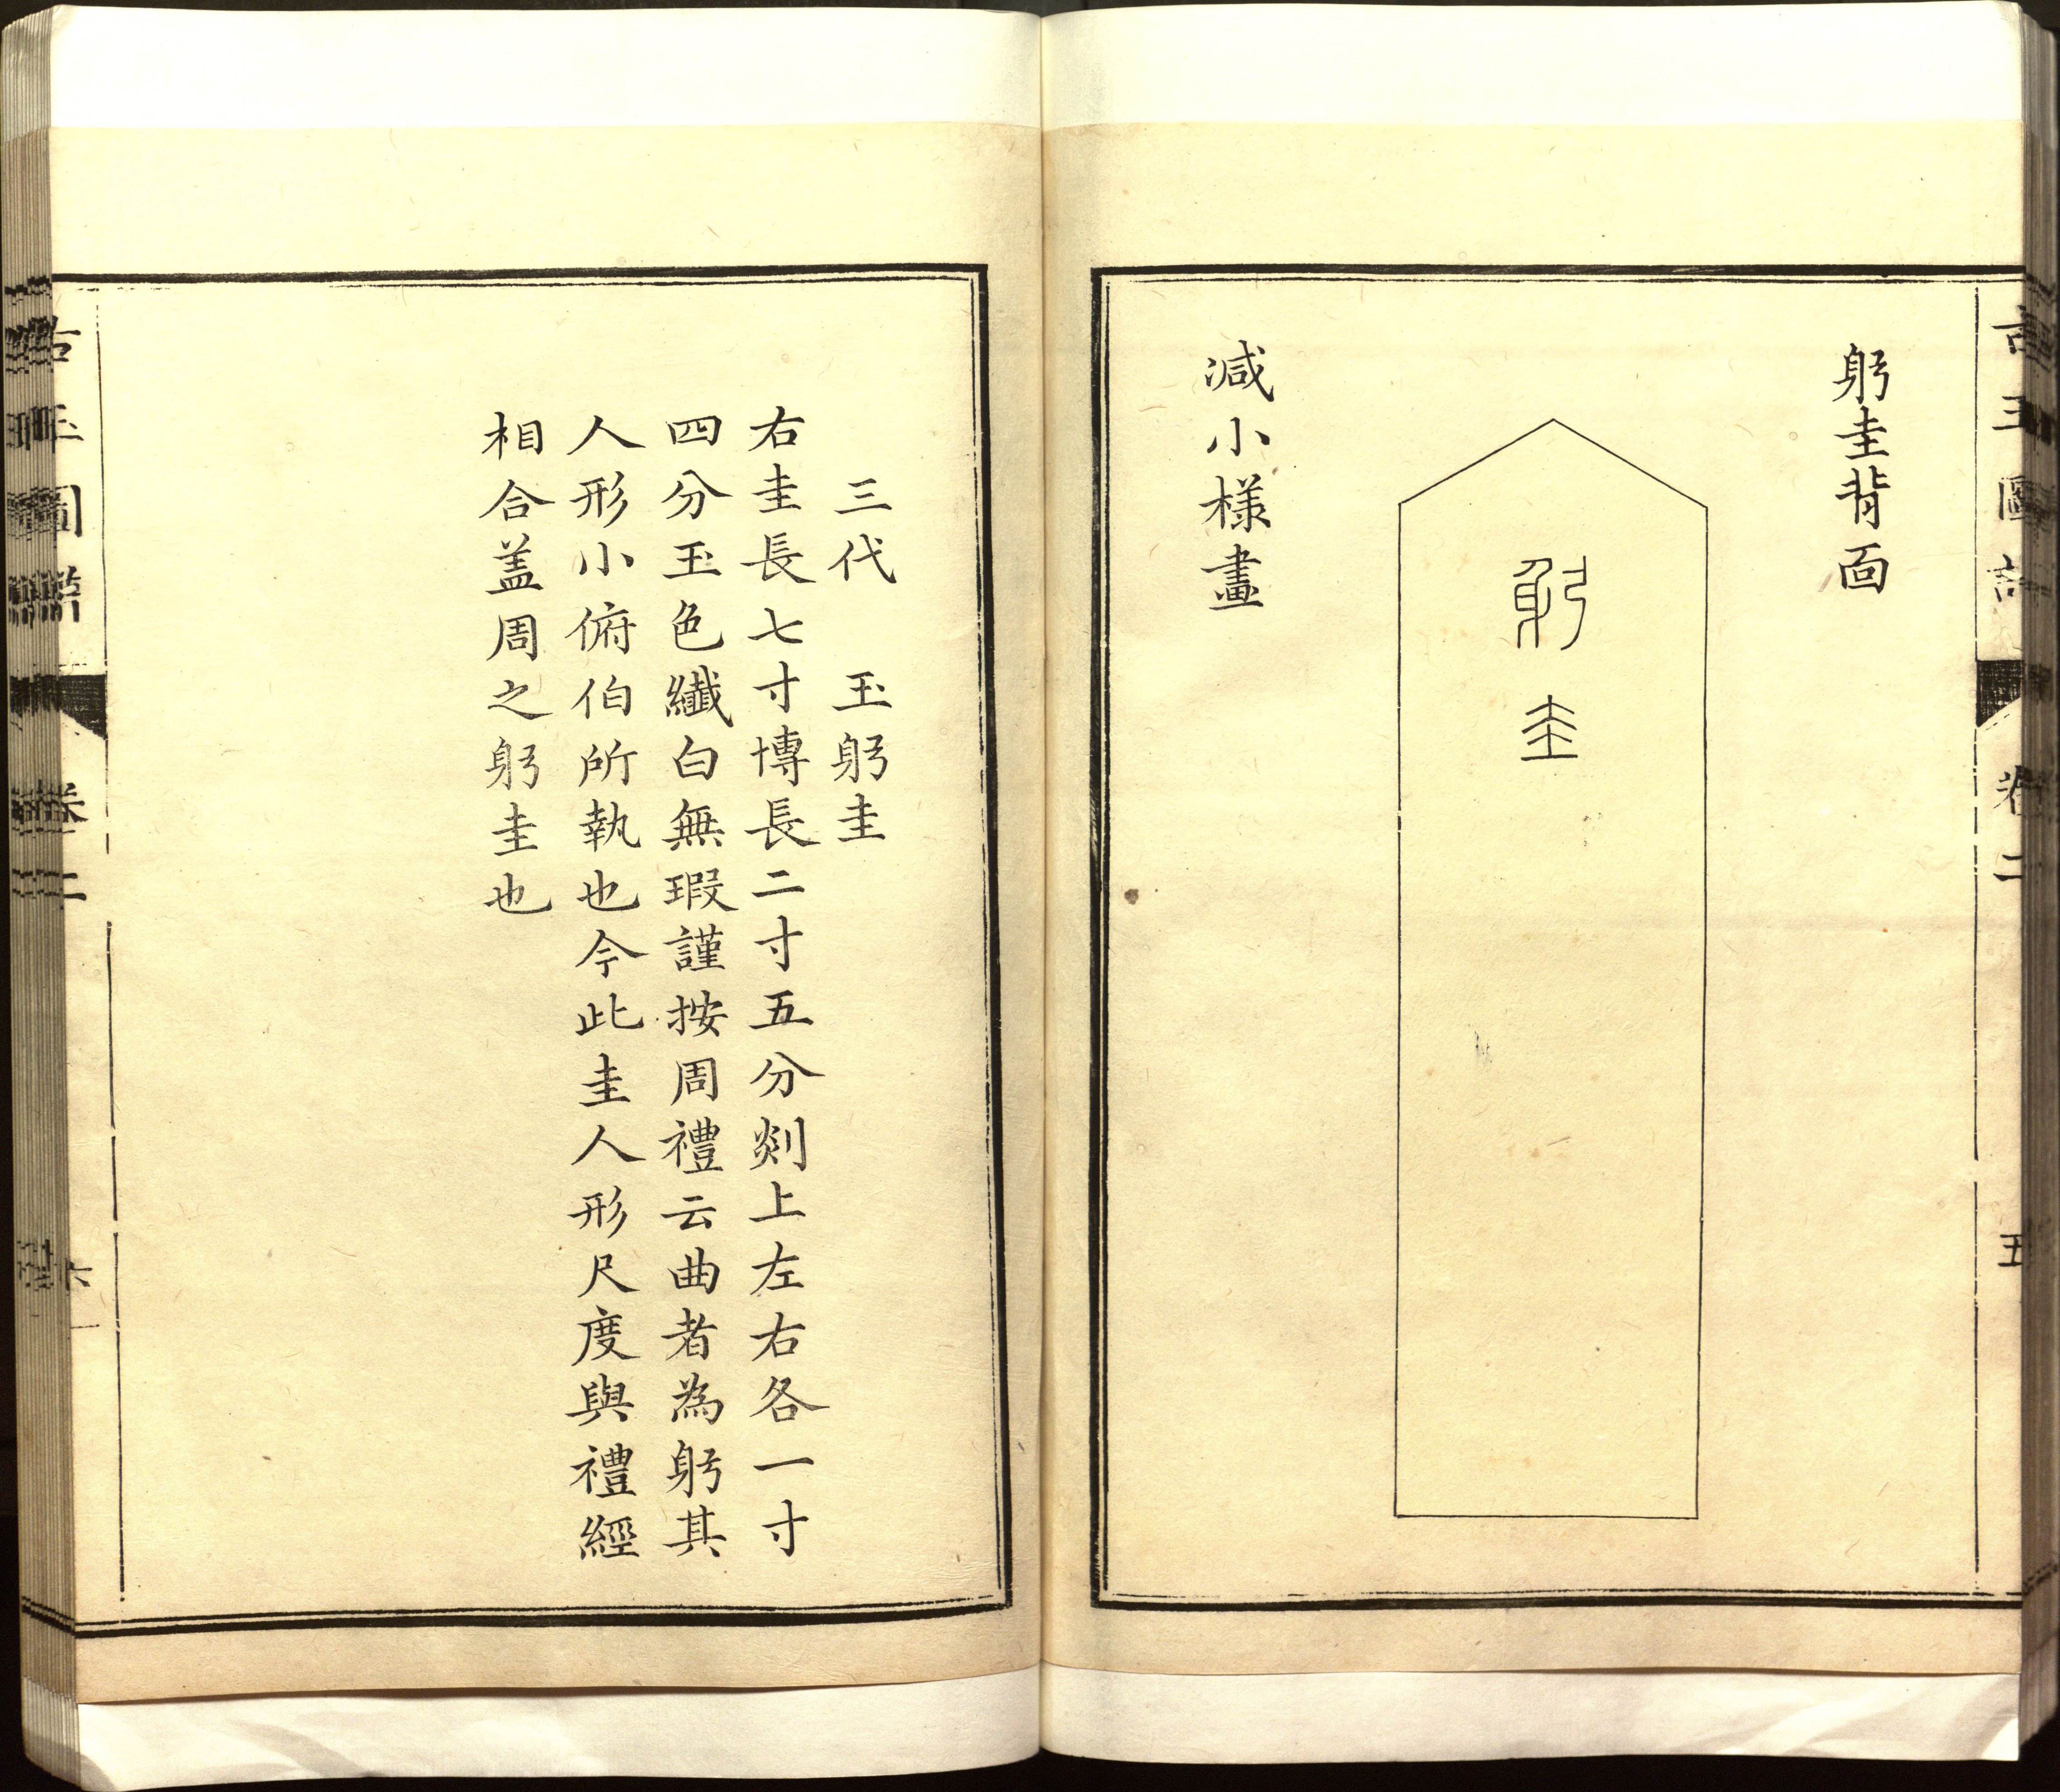 躬圭背面
躬圭
減小様畫
三代 玉躬圭
右圭長七寸博長二寸五分剡上左右各一寸
四分玉色纖白無瑕謹按周禮云曲者為躬其
人形小俯伯所執也今此圭人形尺度與禮經
相合盖周之躬圭也